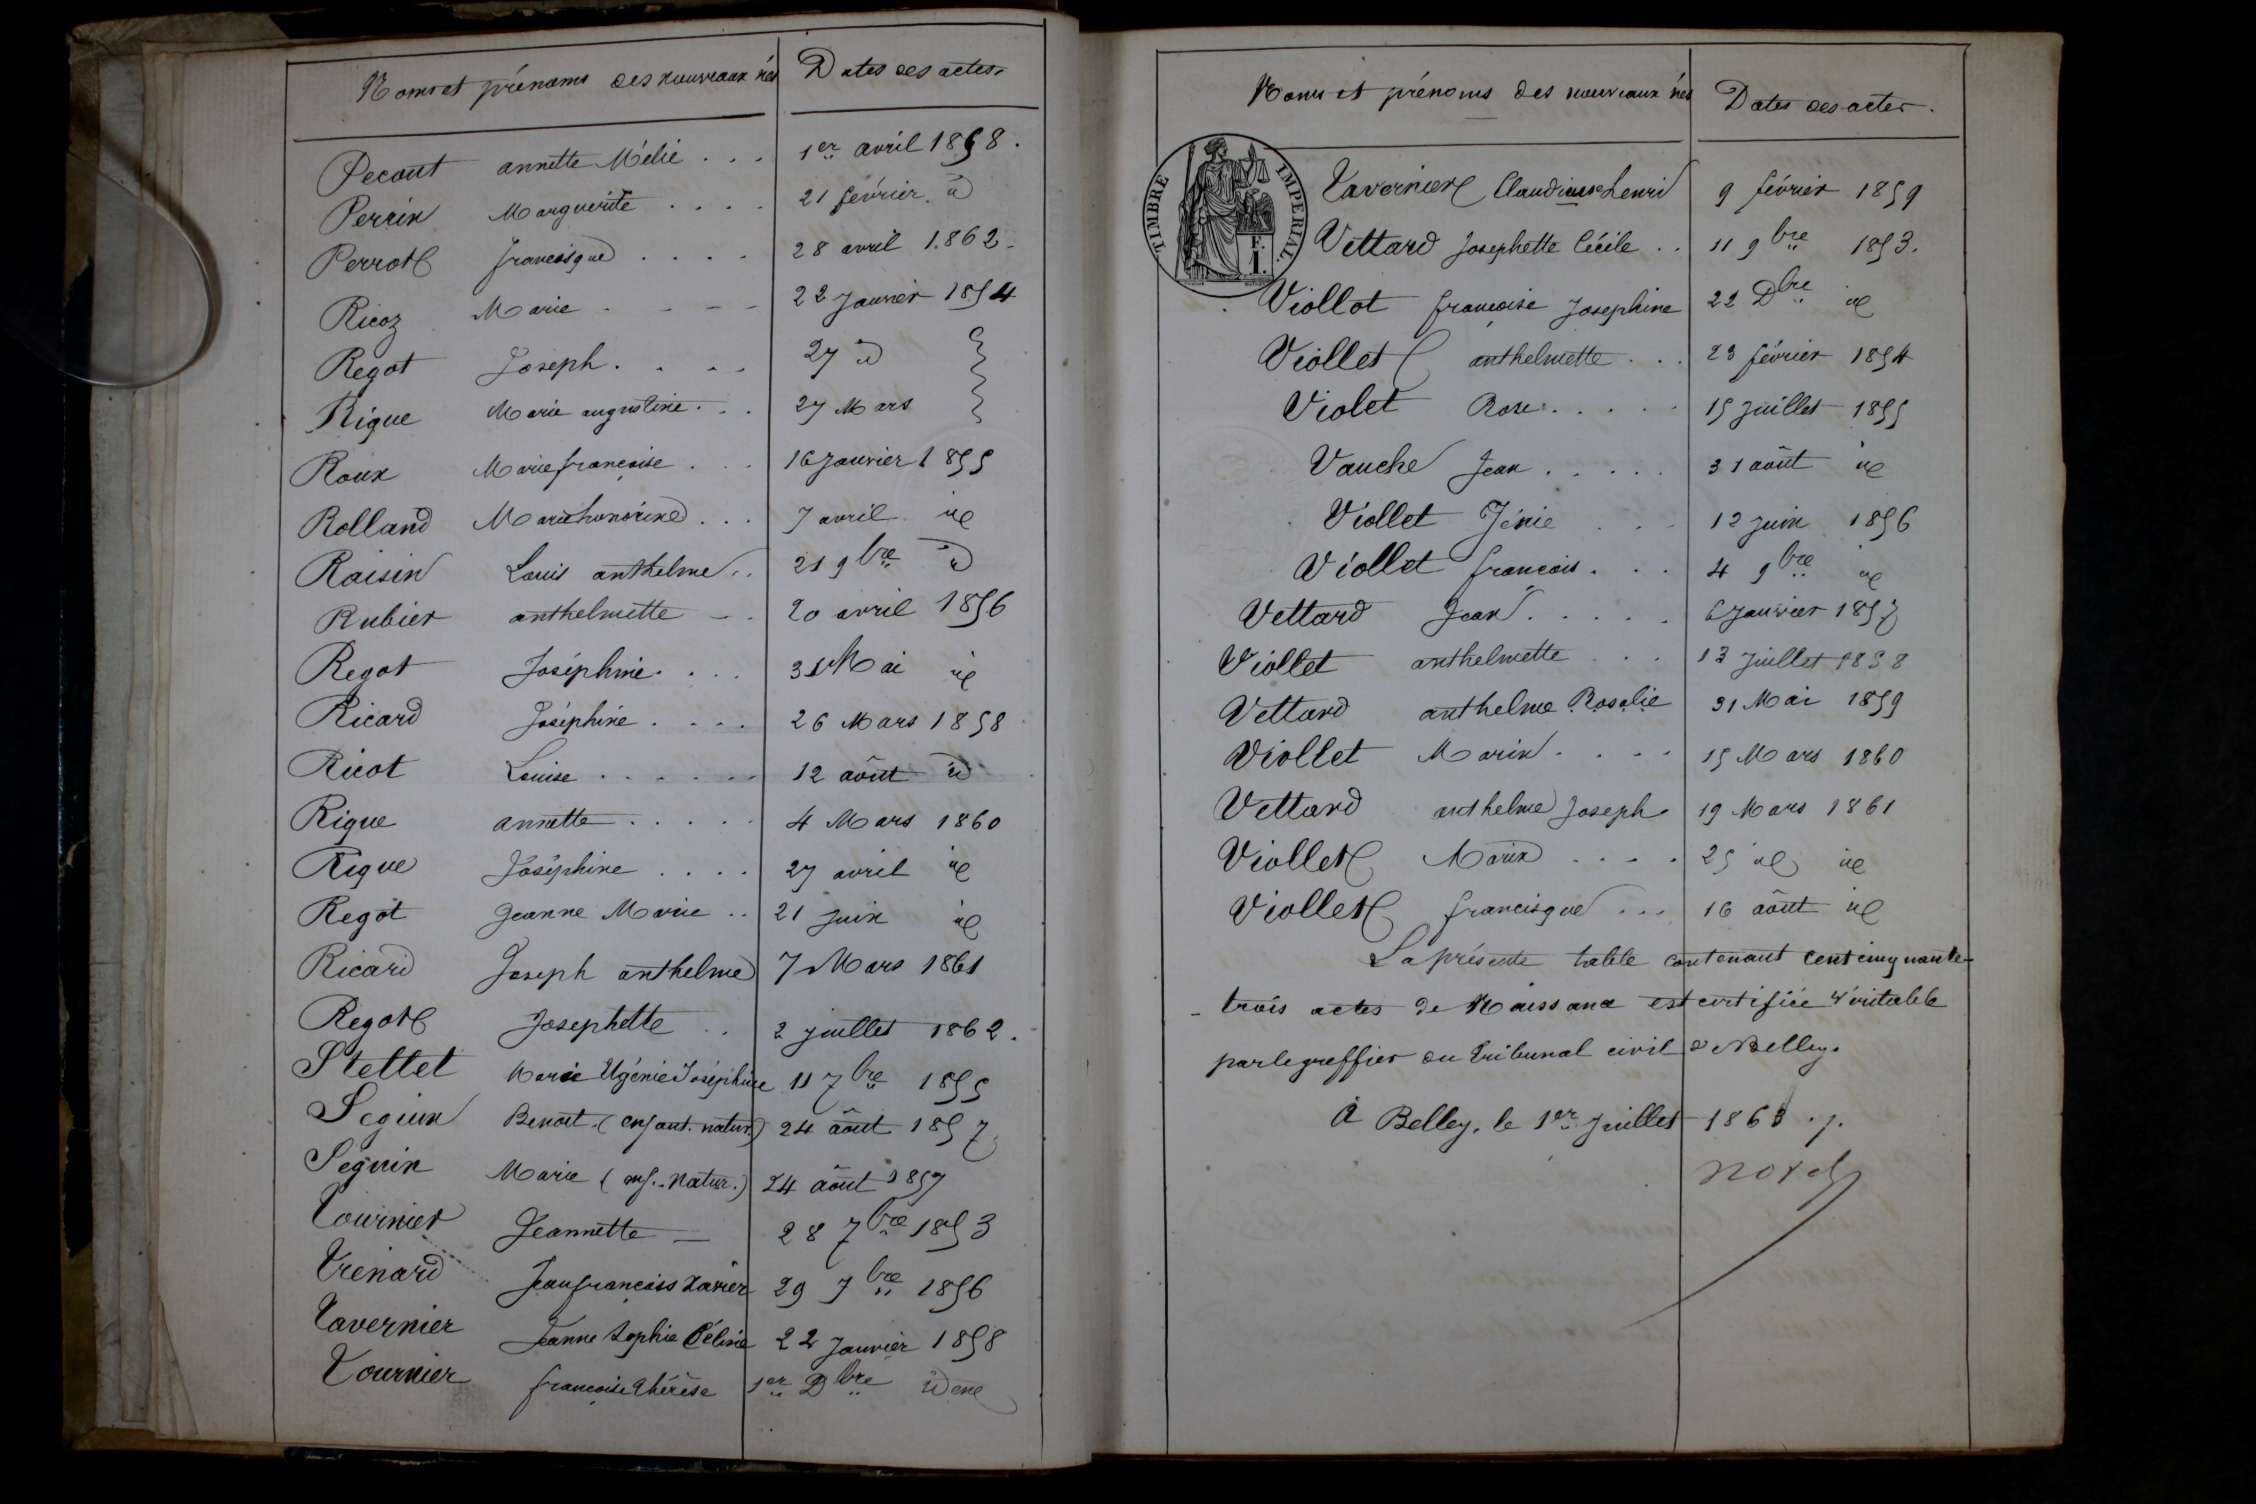 Noms et prénoms des nouveaux nés Dates des actes
Pecout annette Mélie . . . 1er avril 1858.
Perrin Marguerite . . . . 21 février id
Perrot francisque . . . . 28 avril 1862.
Ricoz Marie . - - - 22 Janvier 1854
Regot Joseph. . . . 27 id
Rigue Marie augustine . . . 27 Mars
Roux Marie françoise . . . 16 Janvier 1855
Rolland Marie honorine . . . 7 avril id
Raisin Louis anthelme . . 21 9bre id
Rubier anthelmette - . 20 avril 1856
Regot Joséphine. . . . 31 Mai id
Ricard Joséphine . . . . 26 Mars 1858
Ricot Louise . . . . . . 12 août id
Rigue annette . . . . . 4 Mars 1860
Rigue Joséphine . . . . 27 avril id
Regot Jeanne Marie . . 21 juin id
Ricard Joseph anthelme 7 Mars 1861
Regot Josephette . . 2 juillet 1862.
Stettet Marie Ugénie Joséphine 11 7bre 1855
Seguin Benoit. (enfant. natur.) 24 août 1857
Séguin Marie (enf. natur.) 24 août 1857
Tournier Jeannette — 28 7bre 1853
Trénard Jean françois Xavier 29 7bre 1856
Tavernier Jeanne Sophie Céline 22 Janvier 1858
Tournier françoise Thérèse 1er Dbre idem
Noms et prénoms des nouveaux nés Dates des actes.
TIMBRE IMPERIAL.
E.
1.
Tavernier Claudius henri 9 février 1859
Vettard Josephette Cécile . . 11 9bre 1853.
Viollot françoise Josephine 22 Dbre id
Viollet anthelmette . . . 23 février 1854
Violet Rose . . . . . 15 juillet 1855
Vauche Jean . . . . . 31 août id
Viollet Jénie . . . 12 juin 1856
Viollet françois . . . 4 9bre id
Vettard Jean . . . . . 6 Janvier 1857
Viollet anthelmette . . . 13 Juillet 1858
Vettard anthelme Rosalie 31 Mai 1859
Viollet Marin . . . . 15 Mars 1860
Vettard anthelme Joseph 19 Mars 1861
Viollet Marin . . . . 25 id id
Viollet francisque . . . 16 août id
La présente table contenant cent cinquante-
trois actes de Naissance est certifiée véritable
par le greffier du Tribunal civil de Belley.
A Belley, le 1er Juillet 1863 . /.